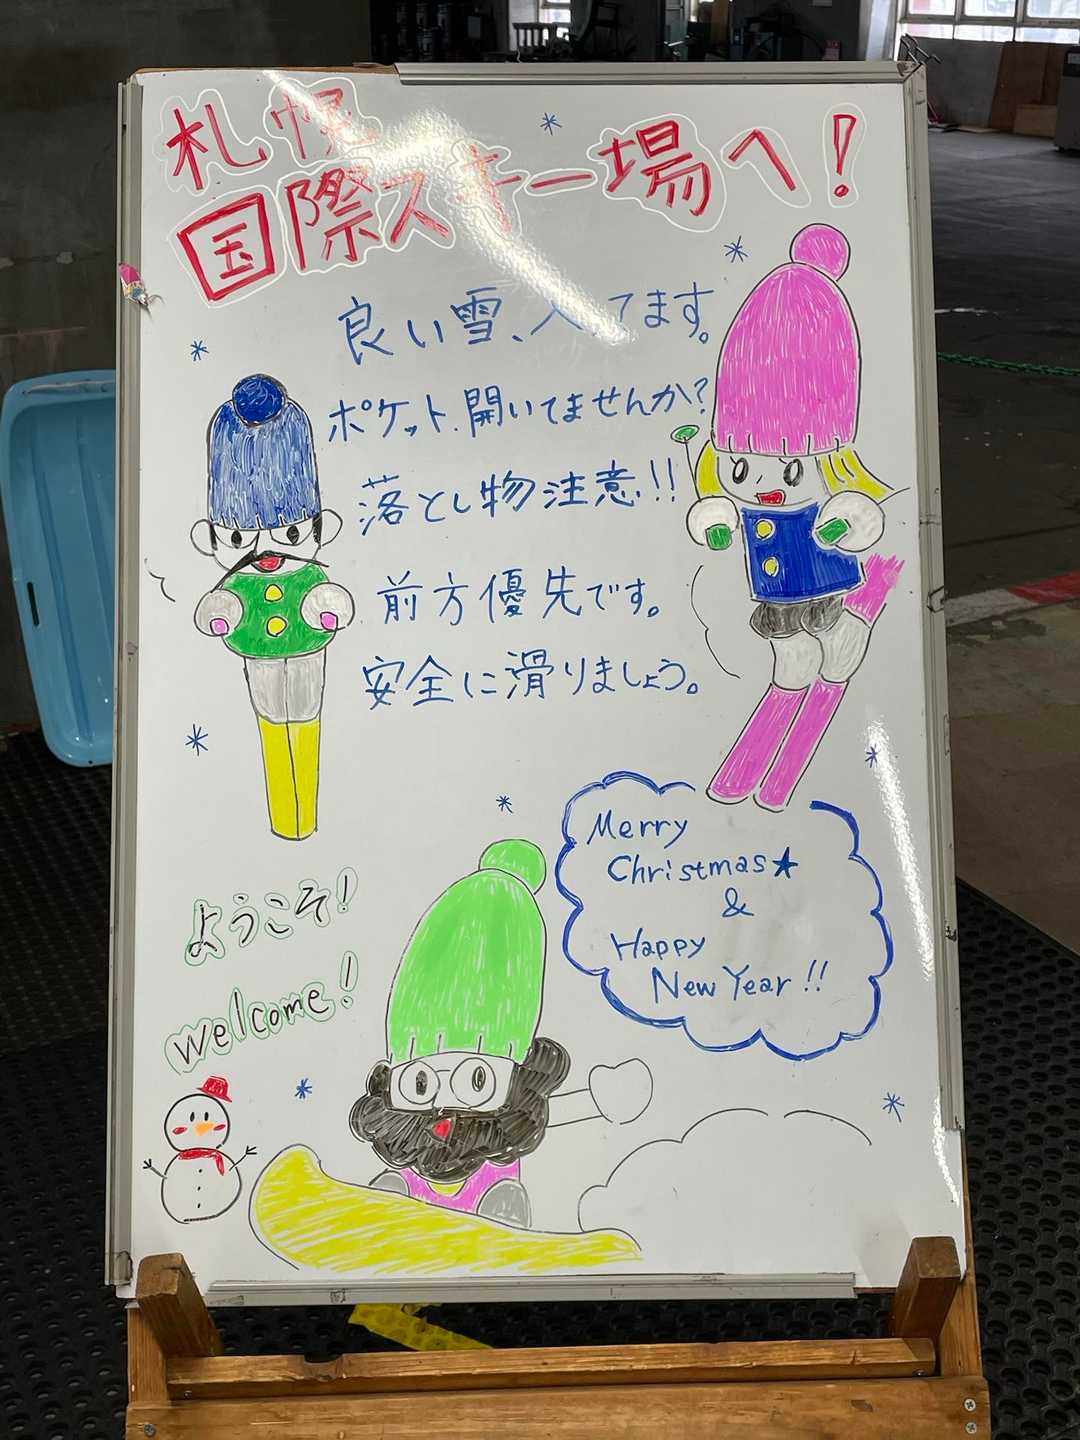 札幌
国際スキー場へ!
良い雪、入ってます。
ポケット、開いてませんか?
落とし物注意!!
前方優先です。
安全に滑りましょう。
Merry
Christmas★
&
Happy
New Year!!
ようこそ!
Welcome!